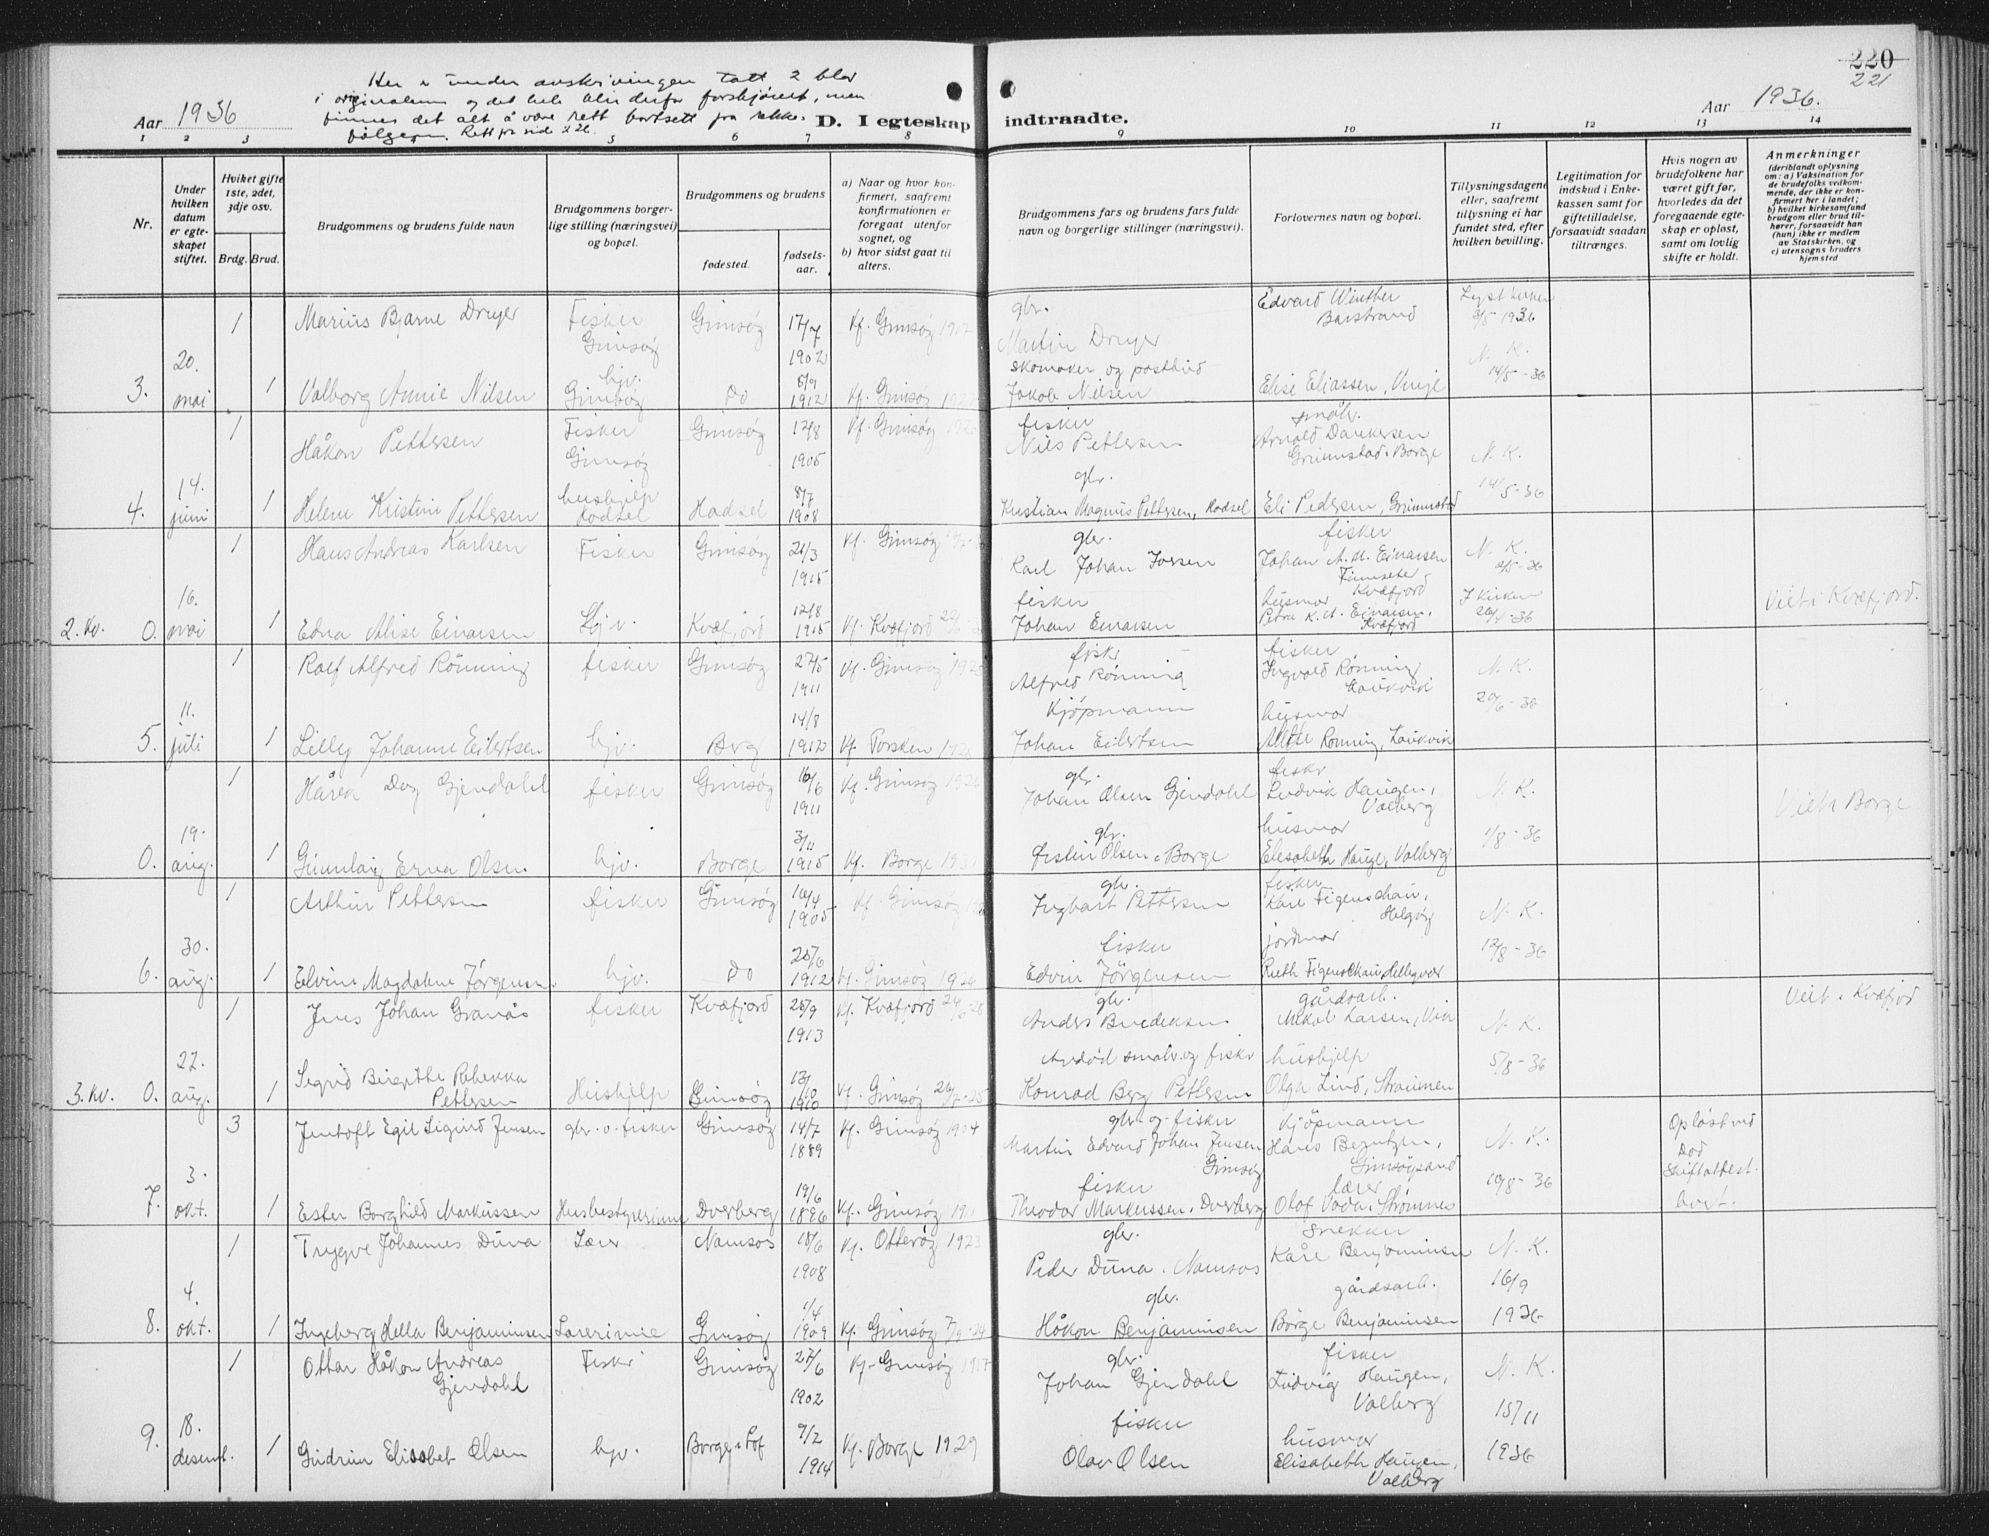 220
221
Her er under avskrivningen tatt 2 blar
i originalen og det hele blir derfor forskjövet, men
finnes det alt å være rett bortsett fra rekke-
følgen. Rett fra side 226.
Aar 1936
D. I egteskap indtraadte.
Aar 1936.
1 2 3 5 6 7 8 9 10 11 12 13 14
Nr.
Under hvilken datum er egteskapet stiftet.
Hviket gifte 1ste, 2det, 3dje osv.
Brdg. Brud.
Brudgommens og brudens fulde navn
Brudgommens borgerlige stilling (næringsvei) og bopæl.
Brudgommens og brudens
fødested.
fødselsaar.
a) Naar og hvor konfirmert, saafremt konfirmationen er foregaat utenfor sognet, og
b) hvor sidst gaat til alters.
Brudgommens fars og brudens fars fulde navn og borgerlige stillinger (næringsvei).
Forlovernes navn og bopæl.
Tillysningsdagene eller, saafremt tillysning ei har fundet sted, efter hvilken bevilling.
Legitimation for indskud i Enkekassen samt for giftetilladelse, forsaavidt saadan tiltrænges.
Hvis nogen av brudefolkene har været gift før, hvorledes da det foregaaende egteskap er opløst, samt om lovlig skifte er holdt.
Anmerkninger
(deriblandt oplysning om: a) Vaksination for de brudefolks vedkommende, der ikke er konfirmert her i landet; b) hvilket kirkesamfund brudgom eller brud tilhører, forsaavidt han (hun) ikke er medlem av Statskirken, og c) utensogns bruders hjemsted
3. 20. mai
1 Marius Bjarne Dreyer Fisker Gimsøy Gimsøy 17/7 1902 Kf. Gimsøy 1917 gbr. Martin Dreyer Edvard Winther Barstrand Lyst kirken 3/5 1936
1 Valborg Annie Nilsen hjv. Gimsøy Do 8/9 1912 Kf. Gimsøy skomaker og postbud Jakob Nilsen Elise Eliassen, Vinje N. K. 14/5-36
4. 14. juni
1 Håkon Pettersen Fisker Gimsøy Gimsøy 12/8 1905 Kf. Gimsøy fisker Nils Pettersen småbr. Arnold Danielsen Grimstad i Borge N. K.
1 Helene Kristine Pettersen hushjelp Hadsel Hadsel 8/7 1908 gbr. Kristian Magnus Pettersen, Hadsel Eli Pedersen, Grimstad 14/5-36
2. Kv. 0. 16. mai
1 Hans Andreas Karlsen Fisker Gimsøy 21/3 1915 Kf. Gimsøy gbr. Karl Johan Iversen fisker Johan A. M. Einarsen Kvæfjord N. K.
1 Edna Alise Einarsen hjv. Kvæfjord 12/8 1915 Kf. Kvæfjord fisker Johan Einarsen husmor Petra K. M. Einarsen, Kvæfjord I Kirken 26/4-36 Viet i Kvæfjord.
5. 11. juli
1 Rolf Alfred Rönning fisker Gimsøy 27/5 1911 Kf. Gimsøy fisker Alfred Rönning fisker Ingvald Rönning Laukvik N. K.
1 Lilly Johanne Eilertsen hjv. Berg 14/8 1912 Kf. Torsken Kjøpmann Johan Eilertsen husmor Rönning, Laukvik 20/6-36
0. 19. aug.
1 Håvar Dag Gjendahl fisker Gimsøy 16/6 1911 Kf. Gimsøy 1926 gbr. Johan Olsen Gjendahl fisker Ludvik Haugen, Valberg N. K.
1 Gunnlaug Erna Olsen hjv. Borge 3/11 1915 Kf. Borge gbr. Olsen i Borge husmor Elisabeth Hauge, Valberg 1/8-36 Viet i Borge
6. 30. aug.
1 Arthur Pettersen fisker Gimsøy 16/4 1905 Kf. Gimsøy gbr. Ingbart Pettersen fisker Karl Figenschau, Helgøy N. K.
1 Elvine Magdalene Jørgensen hjv. Do 20/6 1912 Kf. Gimsøy fisker Edvin Jörgensen jordmor Ruth Figenschau, Helligvær 12/8-36
3. Kv. 0. 22. aug.
1 Jens Johan Granås fisker Kvæfjord 28/9 1913 Kf. Kvæfjord 24/6-28 gbr. Anders Benediksen gårdsarb. Mikal Larsen, Vik N. K. Viet i Kvæfjord
1 Sigrid Birgitte Rebekka Pettersen Hushjelp Gimsøy 13/10 1910 Kf. Gimsøy 26/7-25 Avdød småbr. og fisker Konrad Berg Pettersen hushjelp Olga Lind, Straumen 5/8-36
7. 3. okt.
3 Jentoft Egil Sigurd Jensen gbr. o. fisker Gimsøy 14/7 1889 Kf. Gimsøy 1904 gbr. og fisker Martin Edvard Johan Jensen Gimsøy Kjöpmann Hans Berntzen, Gimsøysand N. K. Opløst ved Død Skifteattest
1 Ester Borghild Markussen Husbestyrerinne Dverberg 19/6 1896 Kf. Gimsøy fisker Theodor Markussen, Dverberg lærer Olaf Voda, Strømnes 19/8-36
8. 4. okt.
1 Trygve Johannes Duna Lærer Namsos 18/6 1908 Kf. Otterøy 1923 gbr. Peder Duna, Namsos snekker Kåre Benjaminsen N. K.
1 Ingeborg Hella Benjaminsen Lærerinne Gimsøy 1/4 1909 Kf. Gimsøy 7/9-24 gbr. Håkon Benjaminsen gårdsarb. Börge Benjaminsen 16/9 1936
9. 18. desemb.
1 Ottar Håkon Andreas Gjendahl Fisker Gimsøy 27/6 1902 Kf. Gimsøy 1917 gbr. Johan Gjendahl fisker Ludvig Haugen, Valberg N. K.
1 Gudrun Elisabet Olsen hjv. Borge i Lof 9/2 1914 Kf. Borge 1929 fisker Olav Olsen husmor Elisabeth Haugen, Valberg 15/11 1936